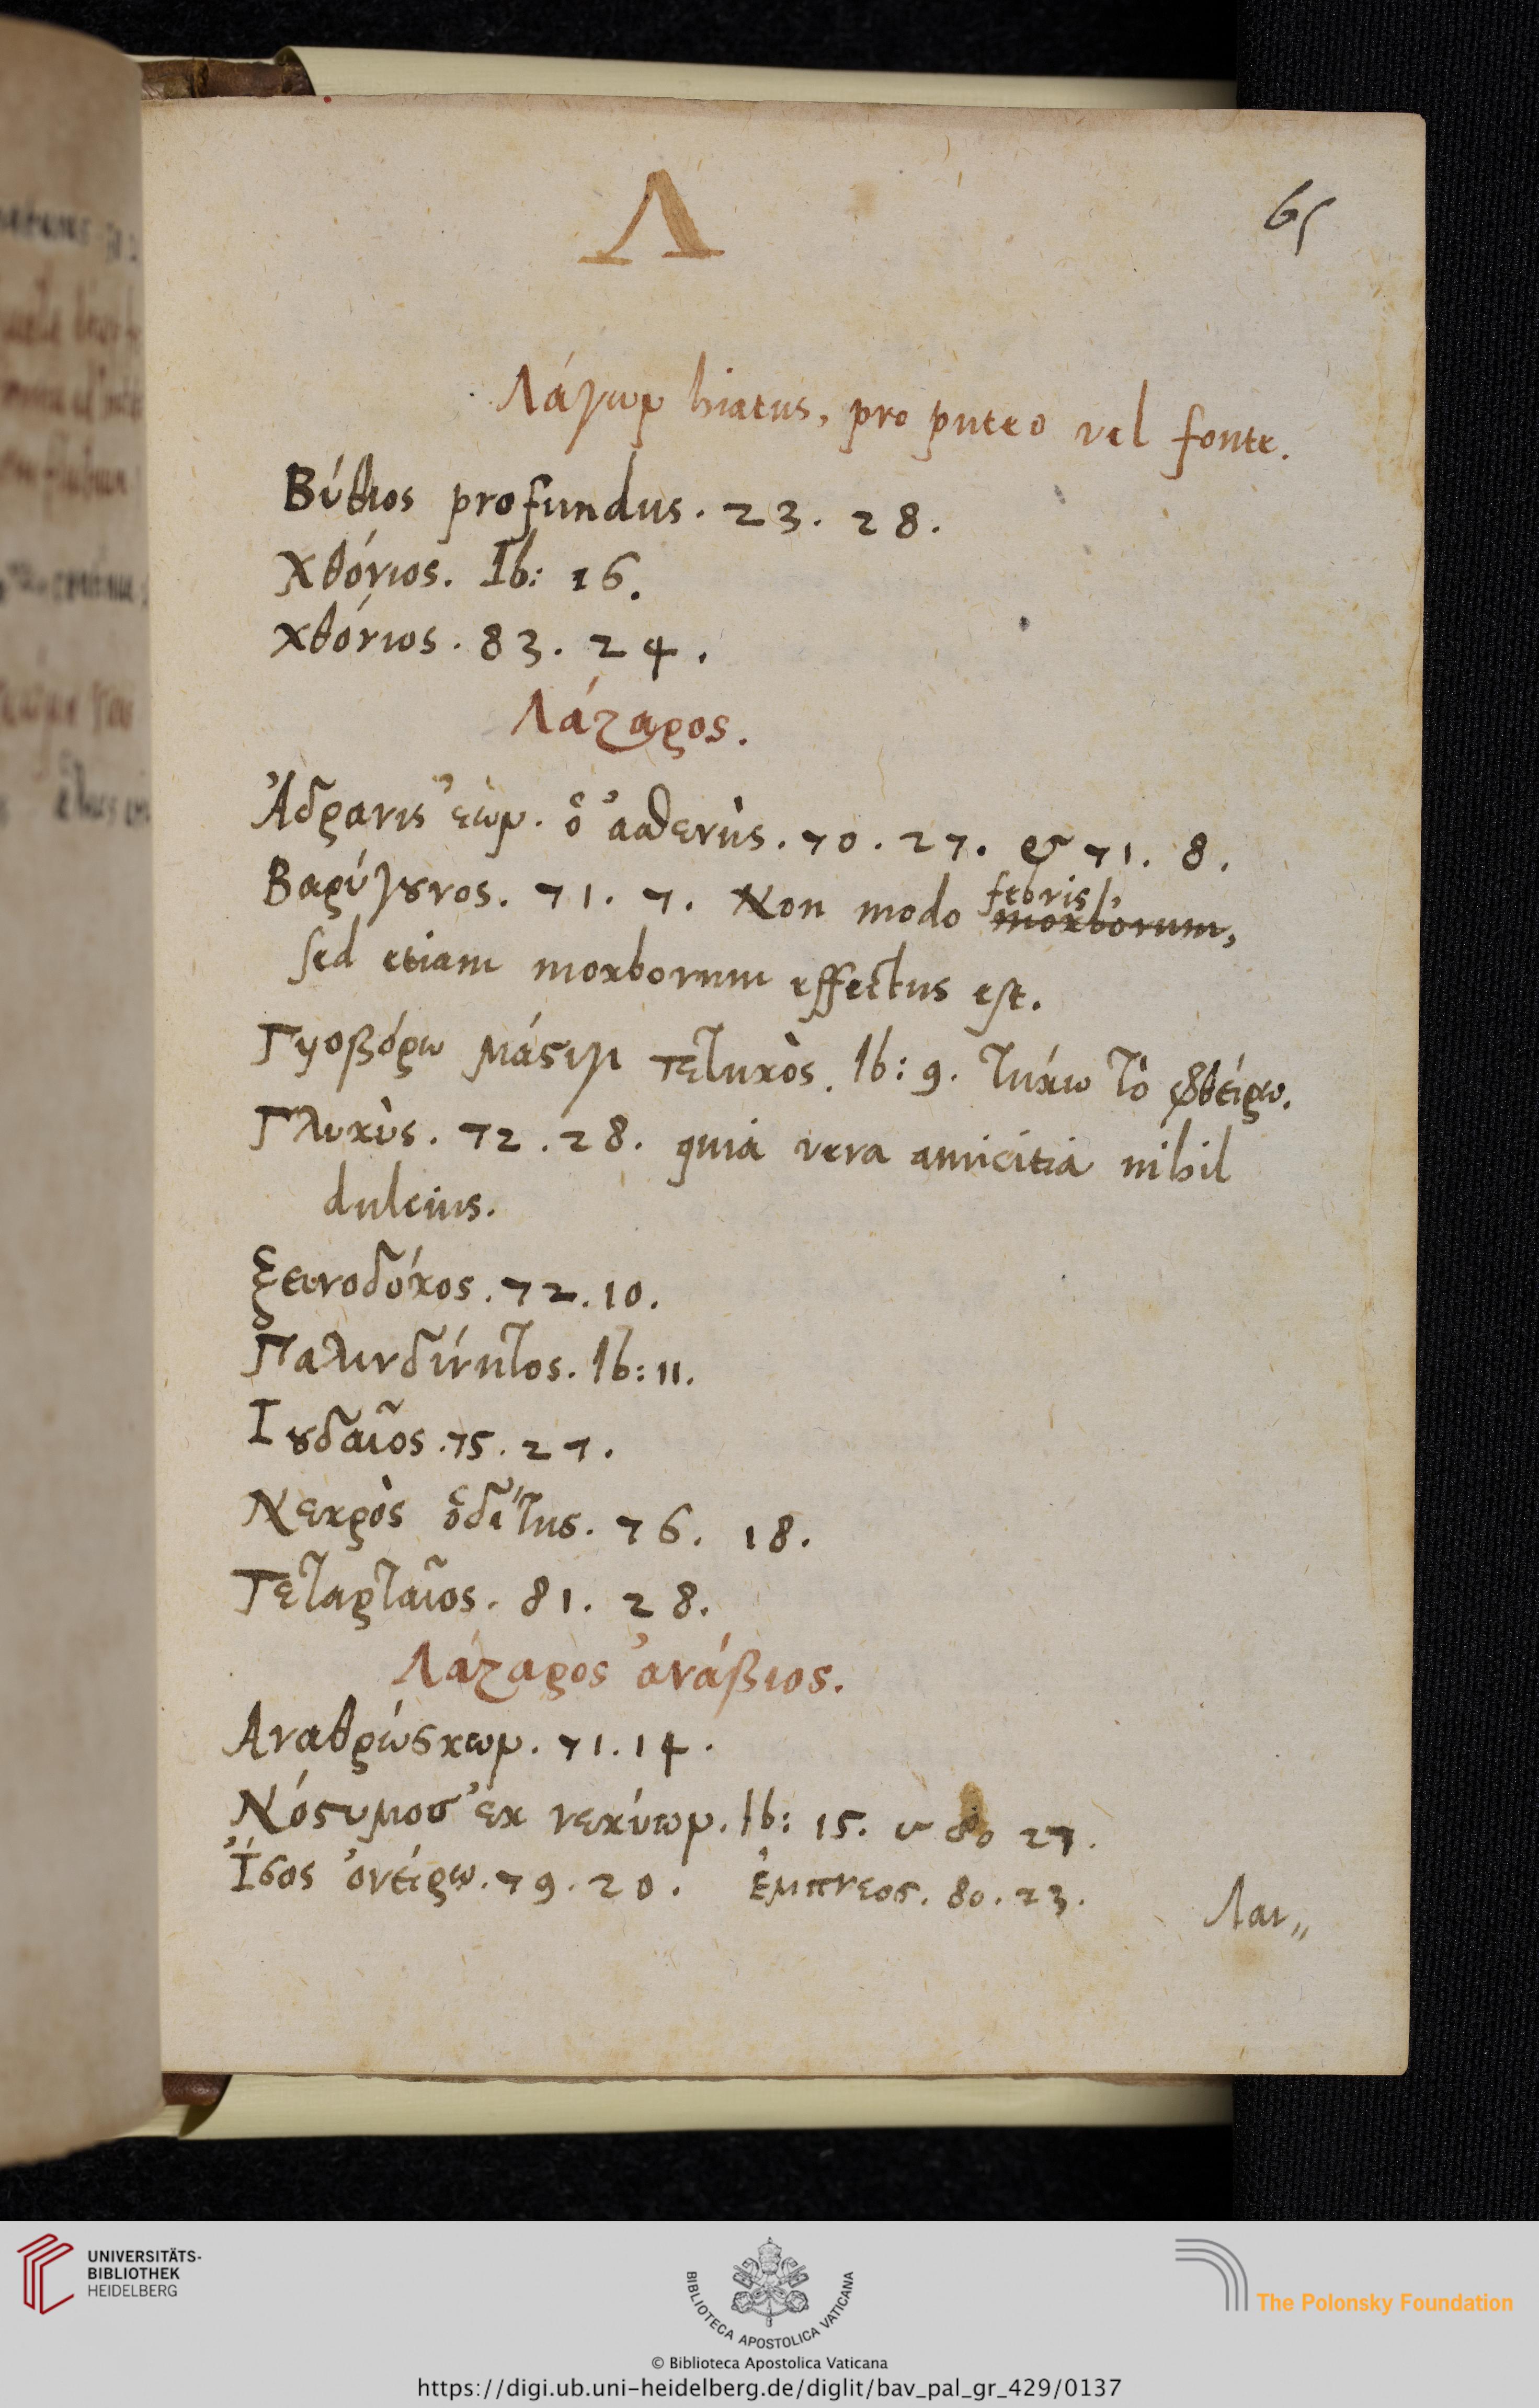 Λ
65
Λάγων hiatus, pro puteo vel fonte.
Βύθιος profundus. 23. 28.
Χθόνιος. Ib: 16.
χθόνιος. 83. 24.
Λάζαρος.
Ἀδρανὶς ἐὼν. ὁ ἀσθενὴς. 70. 27. & 71. 8.
Βαρύγουνος. 71. 7. Non modo febris, morborum,
sed etiam morborum effectus est.
Γυοβόρῳ μάστιγι τετυκὼς. Ib: 9. τύκω τὸ φθείρω.
Γλυκὺς. 72. 28. quia vera amicitia nihil
dulcius.
Ξεινοδόκος. 72. 10.
Παλινδίνητος. Ib: 11.
Ιουδαῖος. 75. 27.
Νεκρὸς ὁδίτης. 76. 18.
Τεταρταῖος. 81. 28.
Λάζαρος ἀνάβιος.
Αναθρώσκων. 71. 14.
Νόστιμος ἐκ νεκύων. Ib: 15. 80 27.
Ἴσος ὀνείρῳ. 79. 20. ἔμπνεος. 80. 23.
Λαι„
UNIVERSITÄTS-
BIBLIOTHEK
HEIDELBERG
BIBLIOTECA APOSTOLICA VATICANA
The Polonsky Foundation
© Biblioteca Apostolica Vaticana
https://digi.ub.uni-heidelberg.de/diglit/bav_pal_gr_429/0137